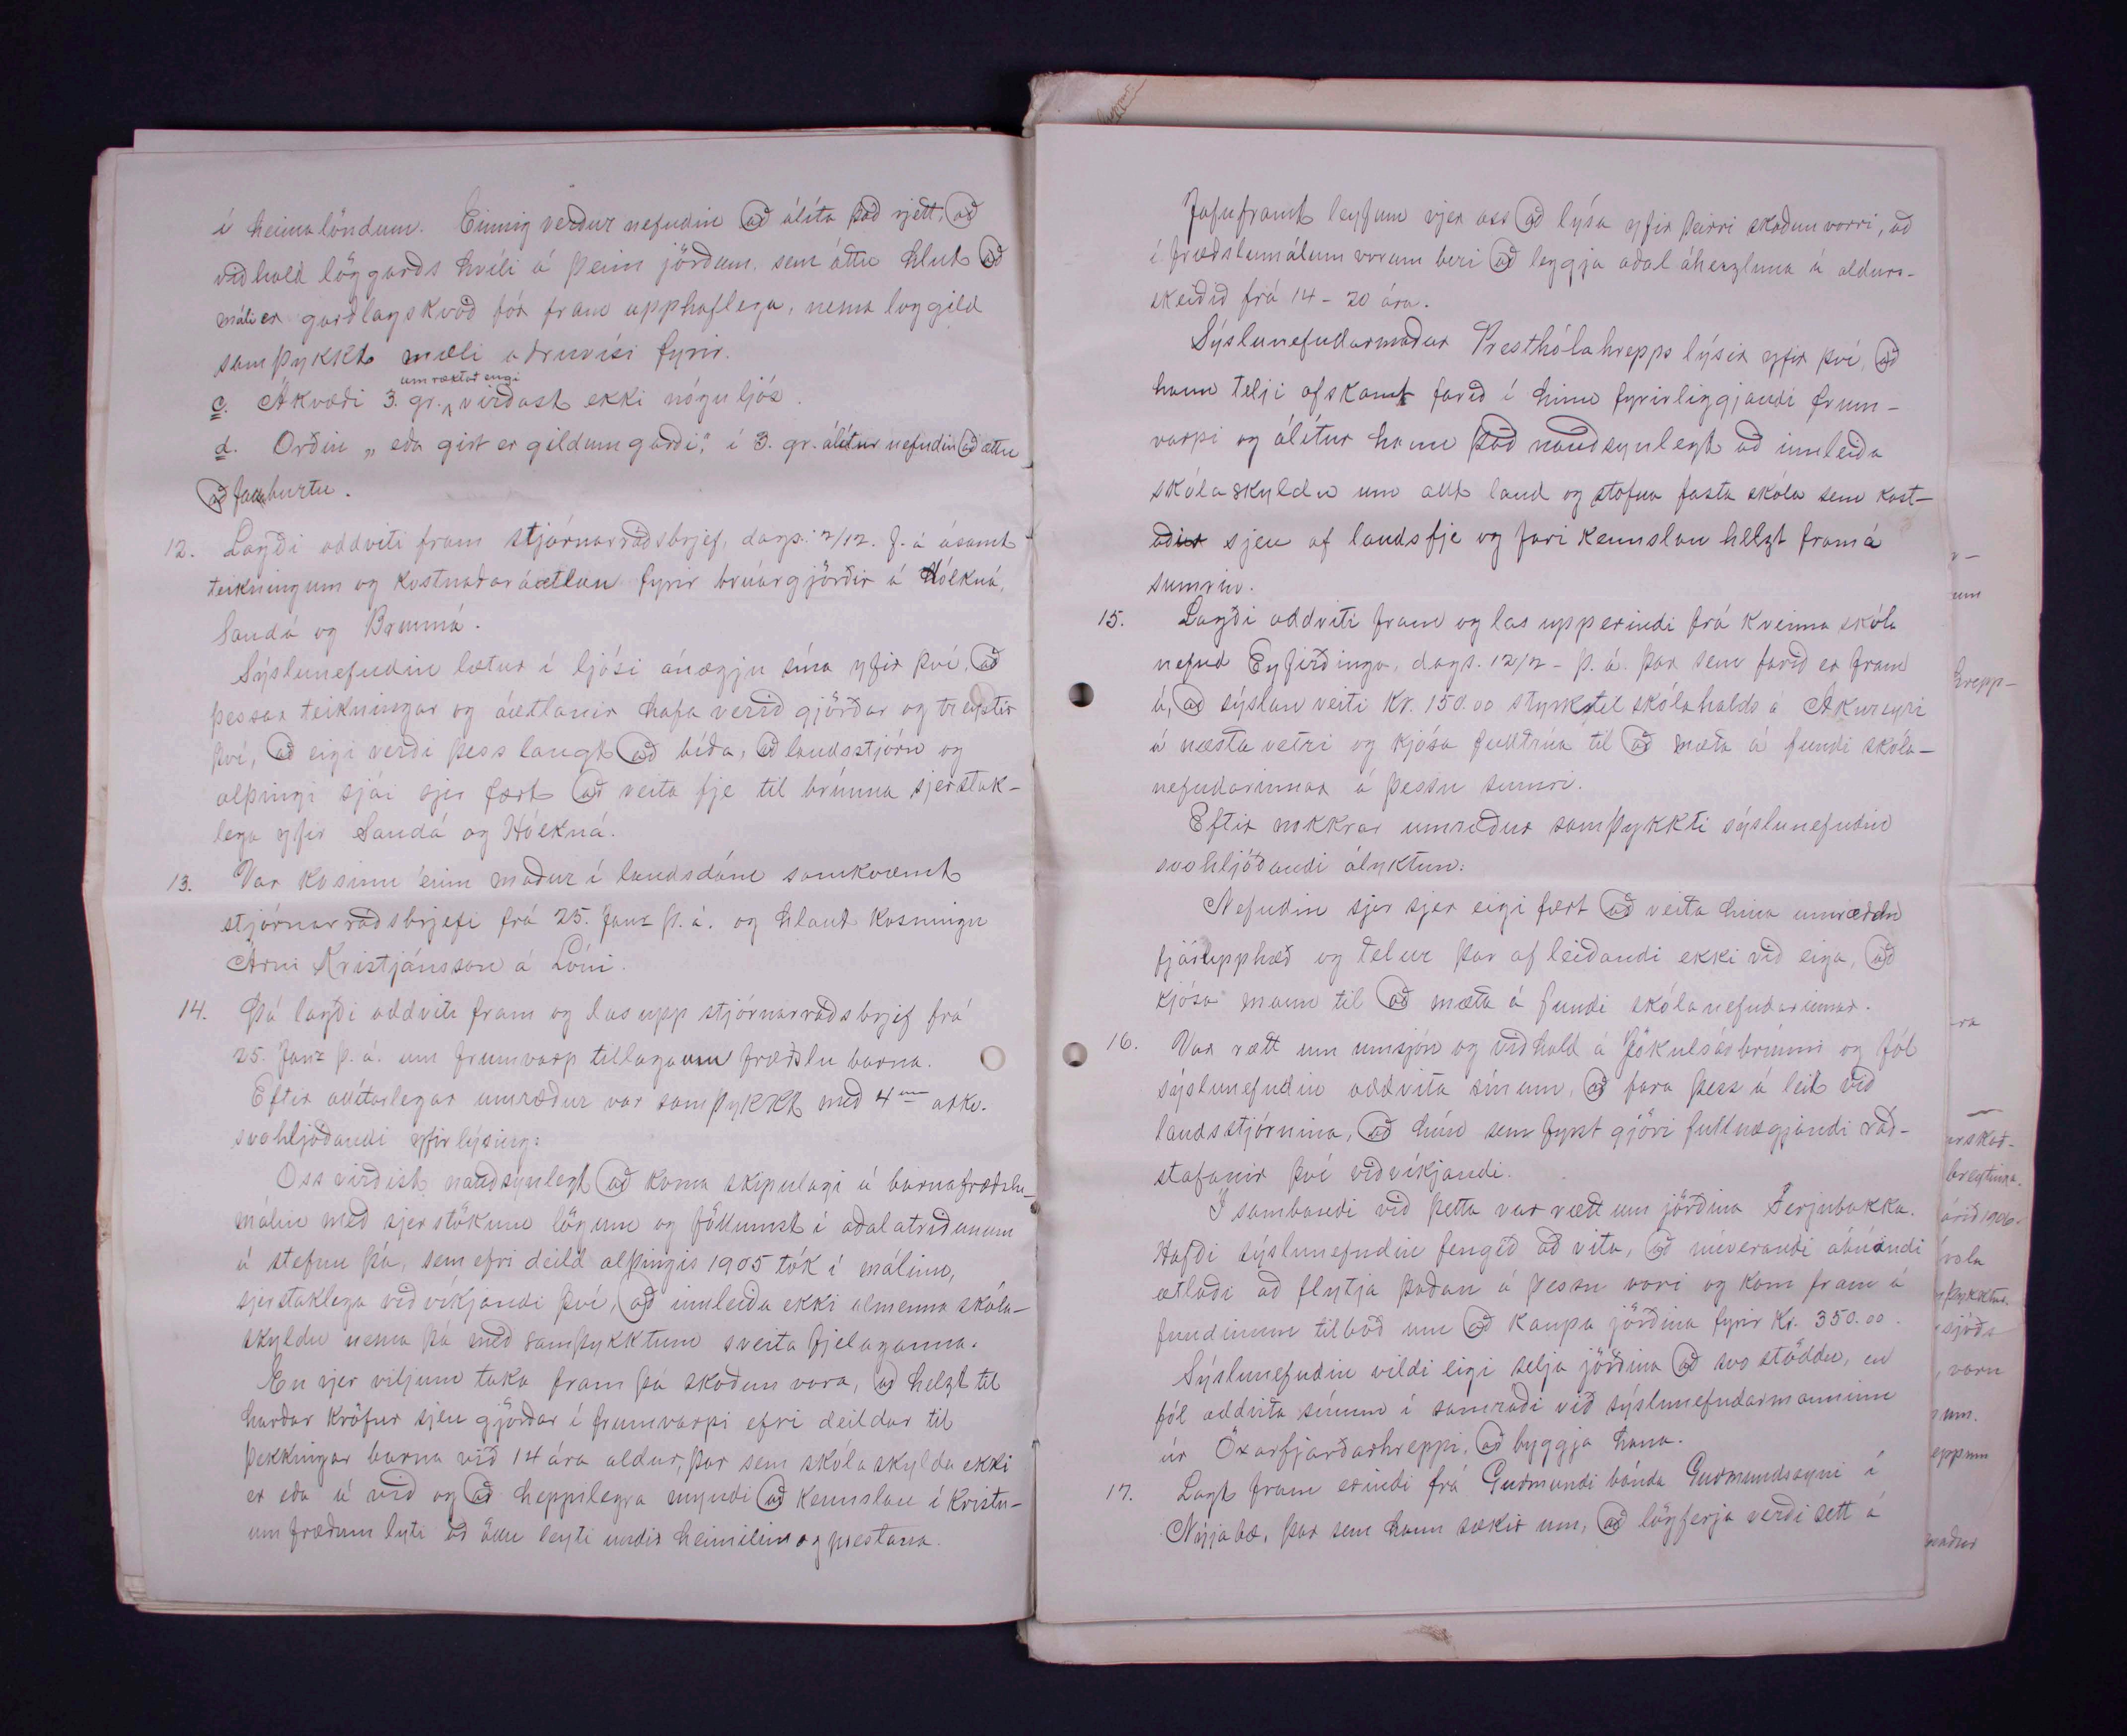 í heimalöndum. Einnig verður nefndin að álíta það rjett, að
viðhald löggarðs hvíli á þeim jörðum, sem áttu hlut að
máli er garðlagskvöð fór fram upphaflega, nema loggild
samþykkt mæli öðruvísi fyrir.
um ræktað engi
c. Ákvæði 3. gr. virðast ekki nógu ljós.
d. Orðin „eða girt er gildum garði," í 3. gr. álítur nefndin að ættu
að falla burtu.
12. Lagði oddviti fram stjórnarráðsbrjef, dags. 2/12. f. á ásamt
teikningum og kostnaðaráætlun fyrir brúargjörðir á Hólkná,
Sandá og Brunná.
Sýslunefndin lætur í ljósi ánægju sína yfir því, að
þessar teikningar og áætlanir hafa verið gjörðar og treystir
því, að eigi verði þess langt að bíða, að landsstjórn og
alþingi sjái sjer fært að veita fje til brúnna sjerstak-
lega yfir Sandá og Hólkná.
13. Var kosinn einn maður í landsdóm samkvæmt
stjórnarráðsbrjefi frá 25. Janr þ. á. og hlaut kosningu
Árni Kristjánsson á Lóni.
14. Þá lagði oddviti fram og las upp stjórnarráðsbrjef frá
25. Janr þ. á. um frumvarp tillaga um fræðslu barna.
Eftir allítarlegar umræður var samþykkt með 4um atkv.
svohljóðandi yfirlýsing:
Oss virðist nauðsynlegt að koma skipulagi á barnafræðslu-
málin með sjerstökum lögum og föllumst í aðalatriðunum
á stefnu þá, sem efri deild alþingis 1905 tók í málinu,
sjerstaklega viðvíkjandi því, að innleiða ekki almenna skóla-
skyldu nema þá með samþykktum sveitafjelaganna.
En vjer viljum taka fram þá skoðun vora, að helzt til
harðar kröfur sjeu gjörðar í frumvarpi efri deildar til
þekkingar barna við 14 ára aldur, þar sem skólaskylda ekki
er eða á við og að heppilegra myndi að kennslan í kristn-
um fræðum lyti að öllu leyti undir heimilin og prestana.
Jafnframt leyfum vjer oss að lýsa yfir þeirri skoðun vorri, að
í fræðslumálum vorum beri að leggja aðal áherzluna á aldurs-
skeiðið frá 14 - 20 ára.
Sýslunefndarmaður Presthólahrepps lýsir yfir því, að
hann telji ofskamt farið í hinu fyrirliggjandi frum-
varpi og álítur hann það nauðsynlegt að innleiða
skólaskyldu um allt land og stofna fasta skóla sem kost-
aðir sjeu af landsfje og fari kennslan helzt fram á
sumrin.
15. Lagði oddviti fram og las upp erindi frá kvennaskóla
nefnd Eyfirðinga, dags. 12/2 - þ. á. þar sem farið er fram
á, að sýslan veiti Kr. 150.00 styrk til skólahalds á Akureyri
á næsta vetri og kjósa fulltrúa til að mæta á fundi skóla-
nefndarinnar á þessu sumri.
Eftir nokkrar umræður samþykkti sýslunefndin
svohljóðandi ályktun:
Nefndin sjer sjer eigi fært að veita hina umræddu
fjárupphæð og telur þar af leiðandi ekki við eiga, að
kjósa mann til að mæta á fundi skólanefndarinnar.
16. Var rætt um umsjón og viðhald á Jökulsárbrúnni og fól
sýslunefndin oddvita sínum, að fara þess á leit við
landsstjórnina, að hún sem fyrst gjöri fullnægjandi ráð-
stafanir því viðvíkjandi.
Í sambandi við þetta var rætt um jörðina Ferjubakka.
Hafði sýslunefndin fengið að vita, að núverandi ábúandi
ætlaði að flytja þaðan á þessu vori og kom fram á
fundinum tilboð um að kaupa jörðina fyrir Kr. 350.00.
Sýslunefndin vildi eigi selja jörðina að svo stöddu, en
fól oddvita sínum í samráði við sýslunefndarmanninn
úr Öxarfjarðarhreppi, að byggja hana.
17. Lagt fram erindi frá Guðmundi bónda Guðmundssyni í
Nýjabæ, þar sem hann sækir um, að lögferja verði sett á